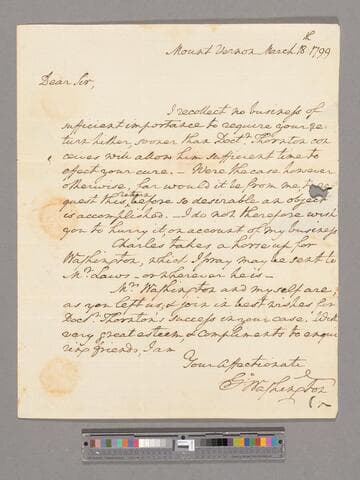 Mount Vernon March 18th 1799
Dear Sir,
I recollect no business of
sufficient importance to require your re-
turn hither, sooner than Doctr. Thornton con
ceives will allow him sufficient time to
effect your cure. – Were the case however
otherwise, far would it be from me to re
quest this, before so desirable an object
is accomplished. – I do not therefore wish
you to hurry it, on account of my business
Charles takes a horse up for
Washington, which I pray may be sent to
Mr. Laws – or wherever he is –
Mrs. Washington and myself are
as you left us, & join in best wishes for
Doctr. Thornton's success in your case. With
very great esteem, & Compliments to enqui
ring friends, I am
Your Affectionate
Go: Washington